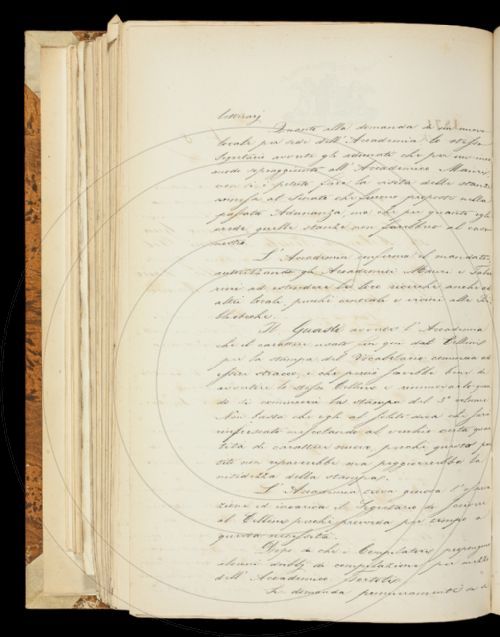 letterarj.
Quanto alla domanda di un nuovo
locale per sede dell'Accademia lo stesso
Segretario avverte gli adunati che per un
modo sopraggiunto all'Accademico Mauri
non si è potuto fare la visita delle stanze
annesse al Senato che furono proposte nella
passata Adunanza, ma che per quanto egli
crede quelle stanze non sarebbero al caso
nostro.
L'Accademia conferma il mandato
autorizzando gli Accademici Mauri e Tabar
rini ad estendere le loro ricerche anche ad
altri locali, purchè centrali e vicini alle Bi
blioteche.
Il Guasti avverte l'Accademia
che il carattere usato fin qui dal Cellini
per la stampa del Vocabolario comincia ad
essere stracco, e che perciò sarebbe bene di
avvertire lo stesso Cellini a rinnovarlo quan
do si comincerà la stampa del 3° volume.
Nè basta che egli al solito dica che sarà
rinfrescato aggiungendo al vecchio certa quan
tità di carattere nuovo, perchè questo par
tito non riparerebbe ma peggiorerebbe la
nitidezza della stampa.
L'Accademia trova giusta l'osserva
zione ed incarica il Segretario di scrivere
al Cellini perchè provveda per tempo a
questa
Dopo di che i Compilatori propongono
alcuni dubbj di compilazione per
dell'Accademico Bertoldi
Si domanda primieramente se il